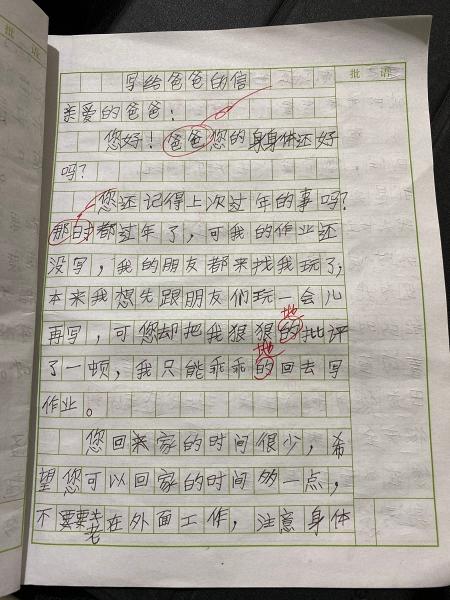 批语
批语
写给爸爸的信
亲爱的爸爸：
您好！爸爸您的身体还好
吗？
您还记得上次过年的事吗？
那时都过年了，可我的作业还
没写，我的朋友都来找我玩了，
本来我想先跟朋友们玩一会儿
地
再写，可您却把我狠狠的批评
地
了一顿，我只能乖乖的回去写
作业。
您回来家的时间很少，希
望您可以回家的时间多一点，
不要老在外面工作，注意身体